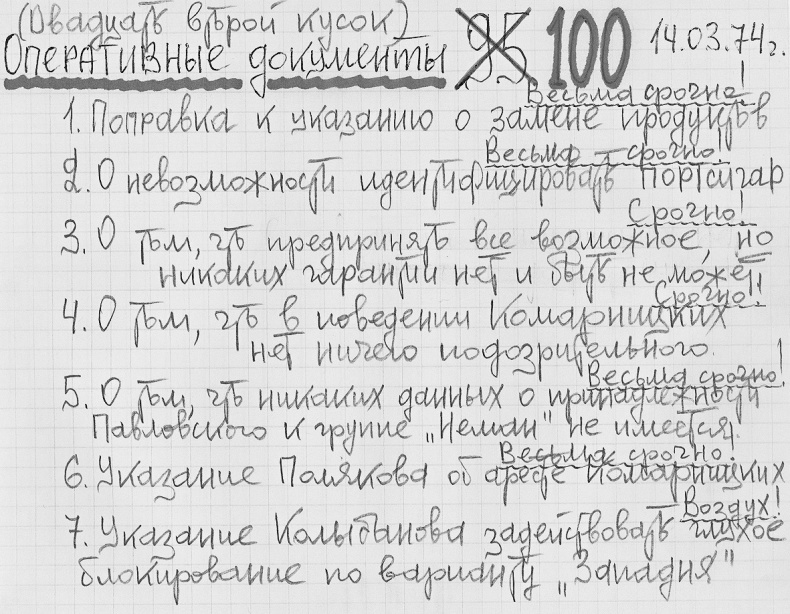 (Двадцать второй кусок)
Оперативные документы 95 100 14.03.74г.
Весьма срочно!
1. Поправка к указанию о замене продуктов
Весьма – срочно!
2. О невозможности идентифицировать портсигар
Срочно!
3. О том, что предпринято все возможное, но
никаких гарантий нет и быть не может!
Срочно!
4. О том, что в поведении Комарницких
нет ничего подозрительного.
Весьма срочно!
5. О том, что никаких данных о принадлежности
Павловского к группе „Неман" не имеется.
Весьма срочно!
6. Указание Полякова об аресте Комарницких
Воздух!
7. Указание Колыбанова задействовать глухое
блокирование по варианту „Западня"